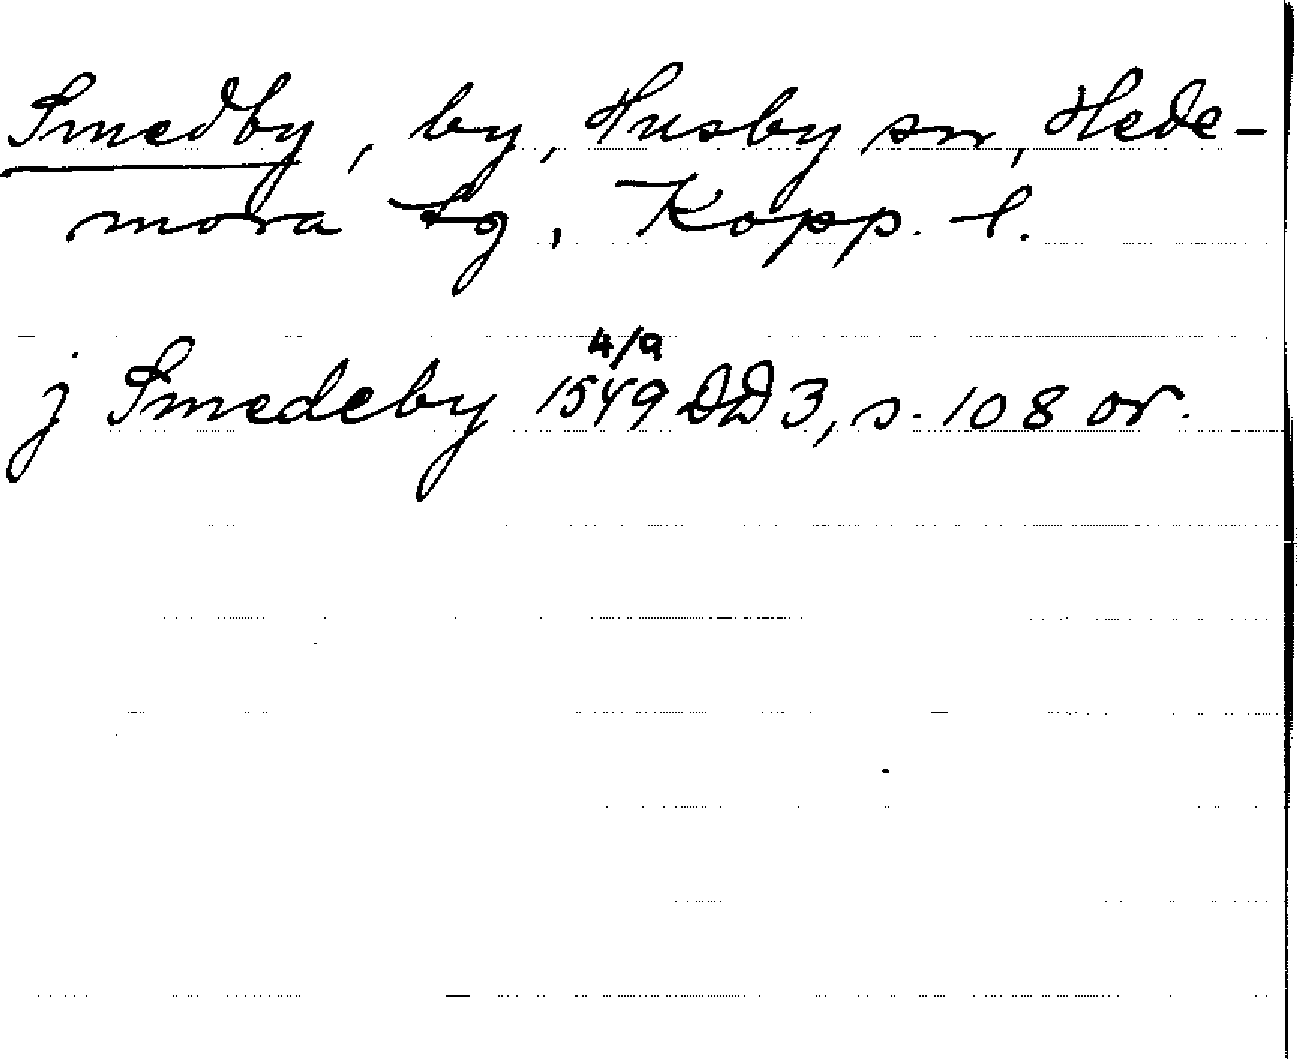 Smedby, by, Husby sn, Hede-
mora tg, Kopp. l.
j Smedeby 4/9 1549 DD 3, s. 108 or.